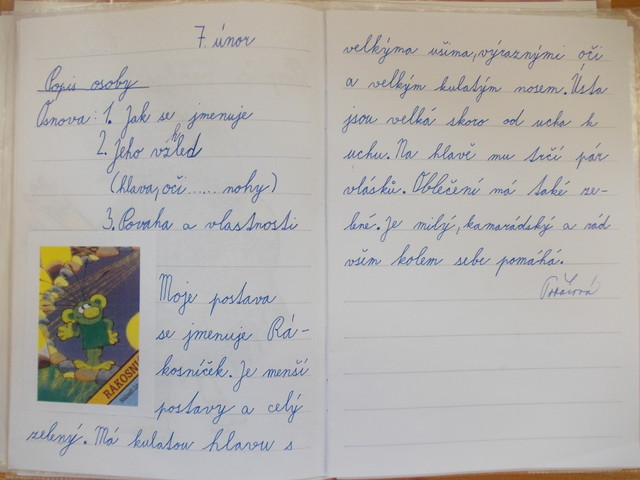 7. únor
Popis osoby
Osnova: 1. Jak se jmenuje
2. Jeho vzhled
(hlava, oči ...... nohy)
3. Povaha a vlastnosti
RÁKOSN
Moje postava
se jmenuje Rá-
kosníček. Je menší
postavy a celý
zelený. Má kulatou hlavu s
velkýma ušima, výraznými oči
a velkým kulatým nosem. Ústa
jsou velká skoro od ucha k
uchu. Na hlavě mu trčí pár
vlásků. Oblečení má také ze-
lené. Je milý, kamarádský a rád
všem kolem sebe pomáhá.